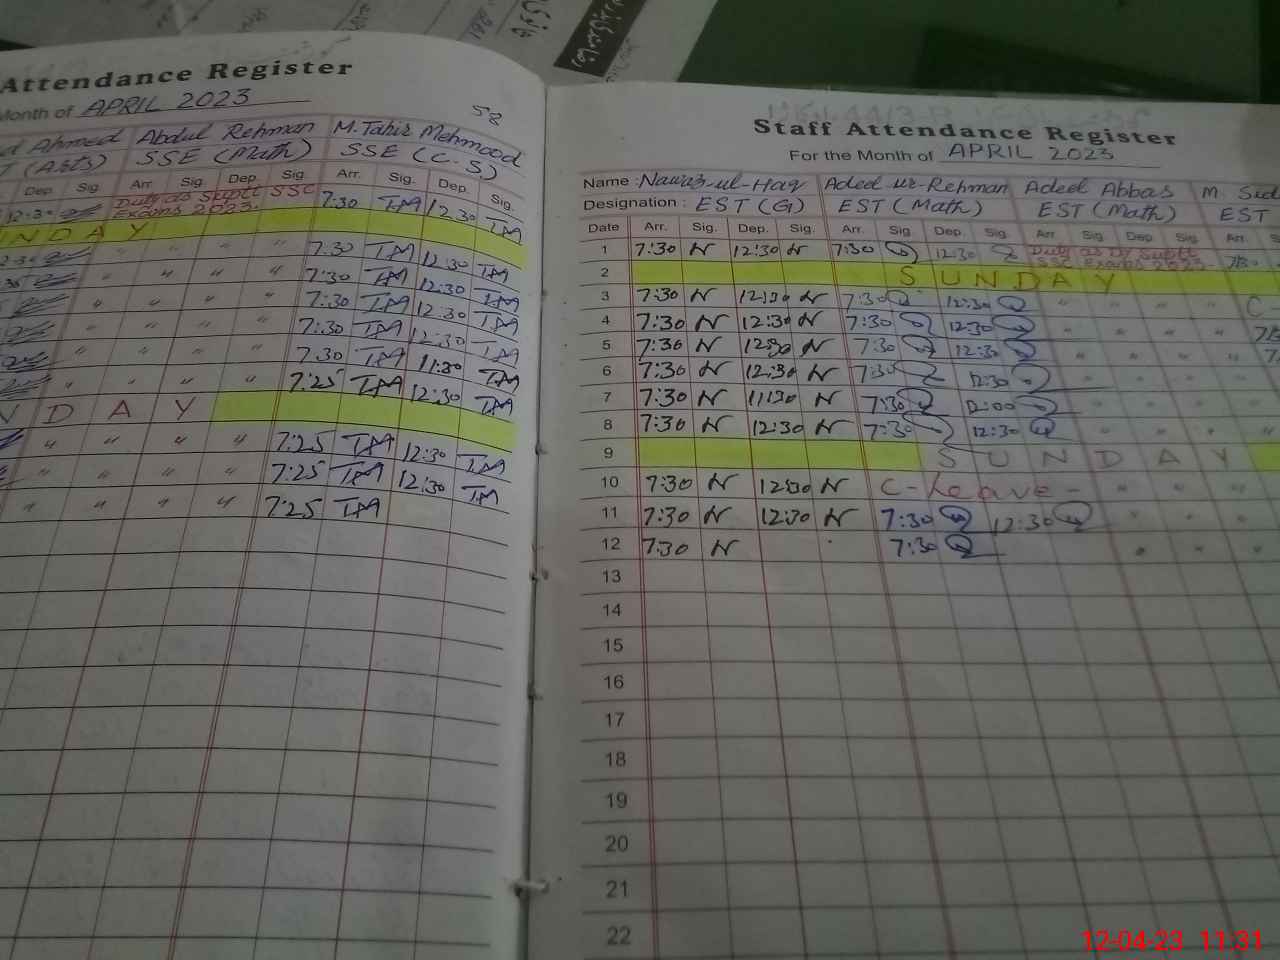 Attendance Register
Month of APRIL 2023
58
Ahmed Abdul Rehman M. Tahir Mehmood
(Arts) SSE (Math) SSE (C.S)
Dep. Sig. Arr. Sig. Dep. Sig. Arr. Sig. Dep. Sig.
12:30 Duty as Suptt SSC Exams 2023. 7:30 TM 12:30 TM
N D A Y
" " " " 7:30 TM 12:30 TM
" " " " 7:30 TM 12:30 TM
" " " " 7:30 TM 12:30 TM
" " " " 7:30 TM 12:30 TM
" " " " 7:30 TM 11:30 TM
" " " " 7:25 TM 12:30 TM
D A Y
" " " " 7:25 TM 12:30 TM
" " " " 7:25 TM 12:30 TM
" " " " 7:25 TM
Staff Attendance Register
For the Month of APRIL 2023
Name : Nawaz-ul-Haq Adeel ur-Rehman Adeel Abbas M.
Designation : EST (G) EST (Math) EST (Math) EST
Date Arr. Sig. Dep. Sig. Arr. Sig. Dep. Sig. Arr. Sig. Dep. Sig. Arr.
1 7:30 N 12:30 N 7:30 12:30 Duty as Suptt SSC Exams 2023
2 S U N D A Y
3 7:30 N 12:30 N 7:30 12:30 " " " " C-
4 7:30 N 12:30 N 7:30 12:30 " " " "
5 7:30 N 12:30 N 7:30 12:30 " " " "
6 7:30 N 12:30 N 7:30 12:30 " " "
7 7:30 N 11:30 N 7:30 12:00 " " "
8 7:30 N 12:30 N 7:30 12:30 " " " "
9 S U N D A Y
10 7:30 N 12:30 N C-Leave- " " "
11 7:30 N 12:30 N 7:30 12:30 " " "
12 7:30 N 7:30 " " "
13
14
15
16
17
18
19
20
21
22
12-04-23 11:31